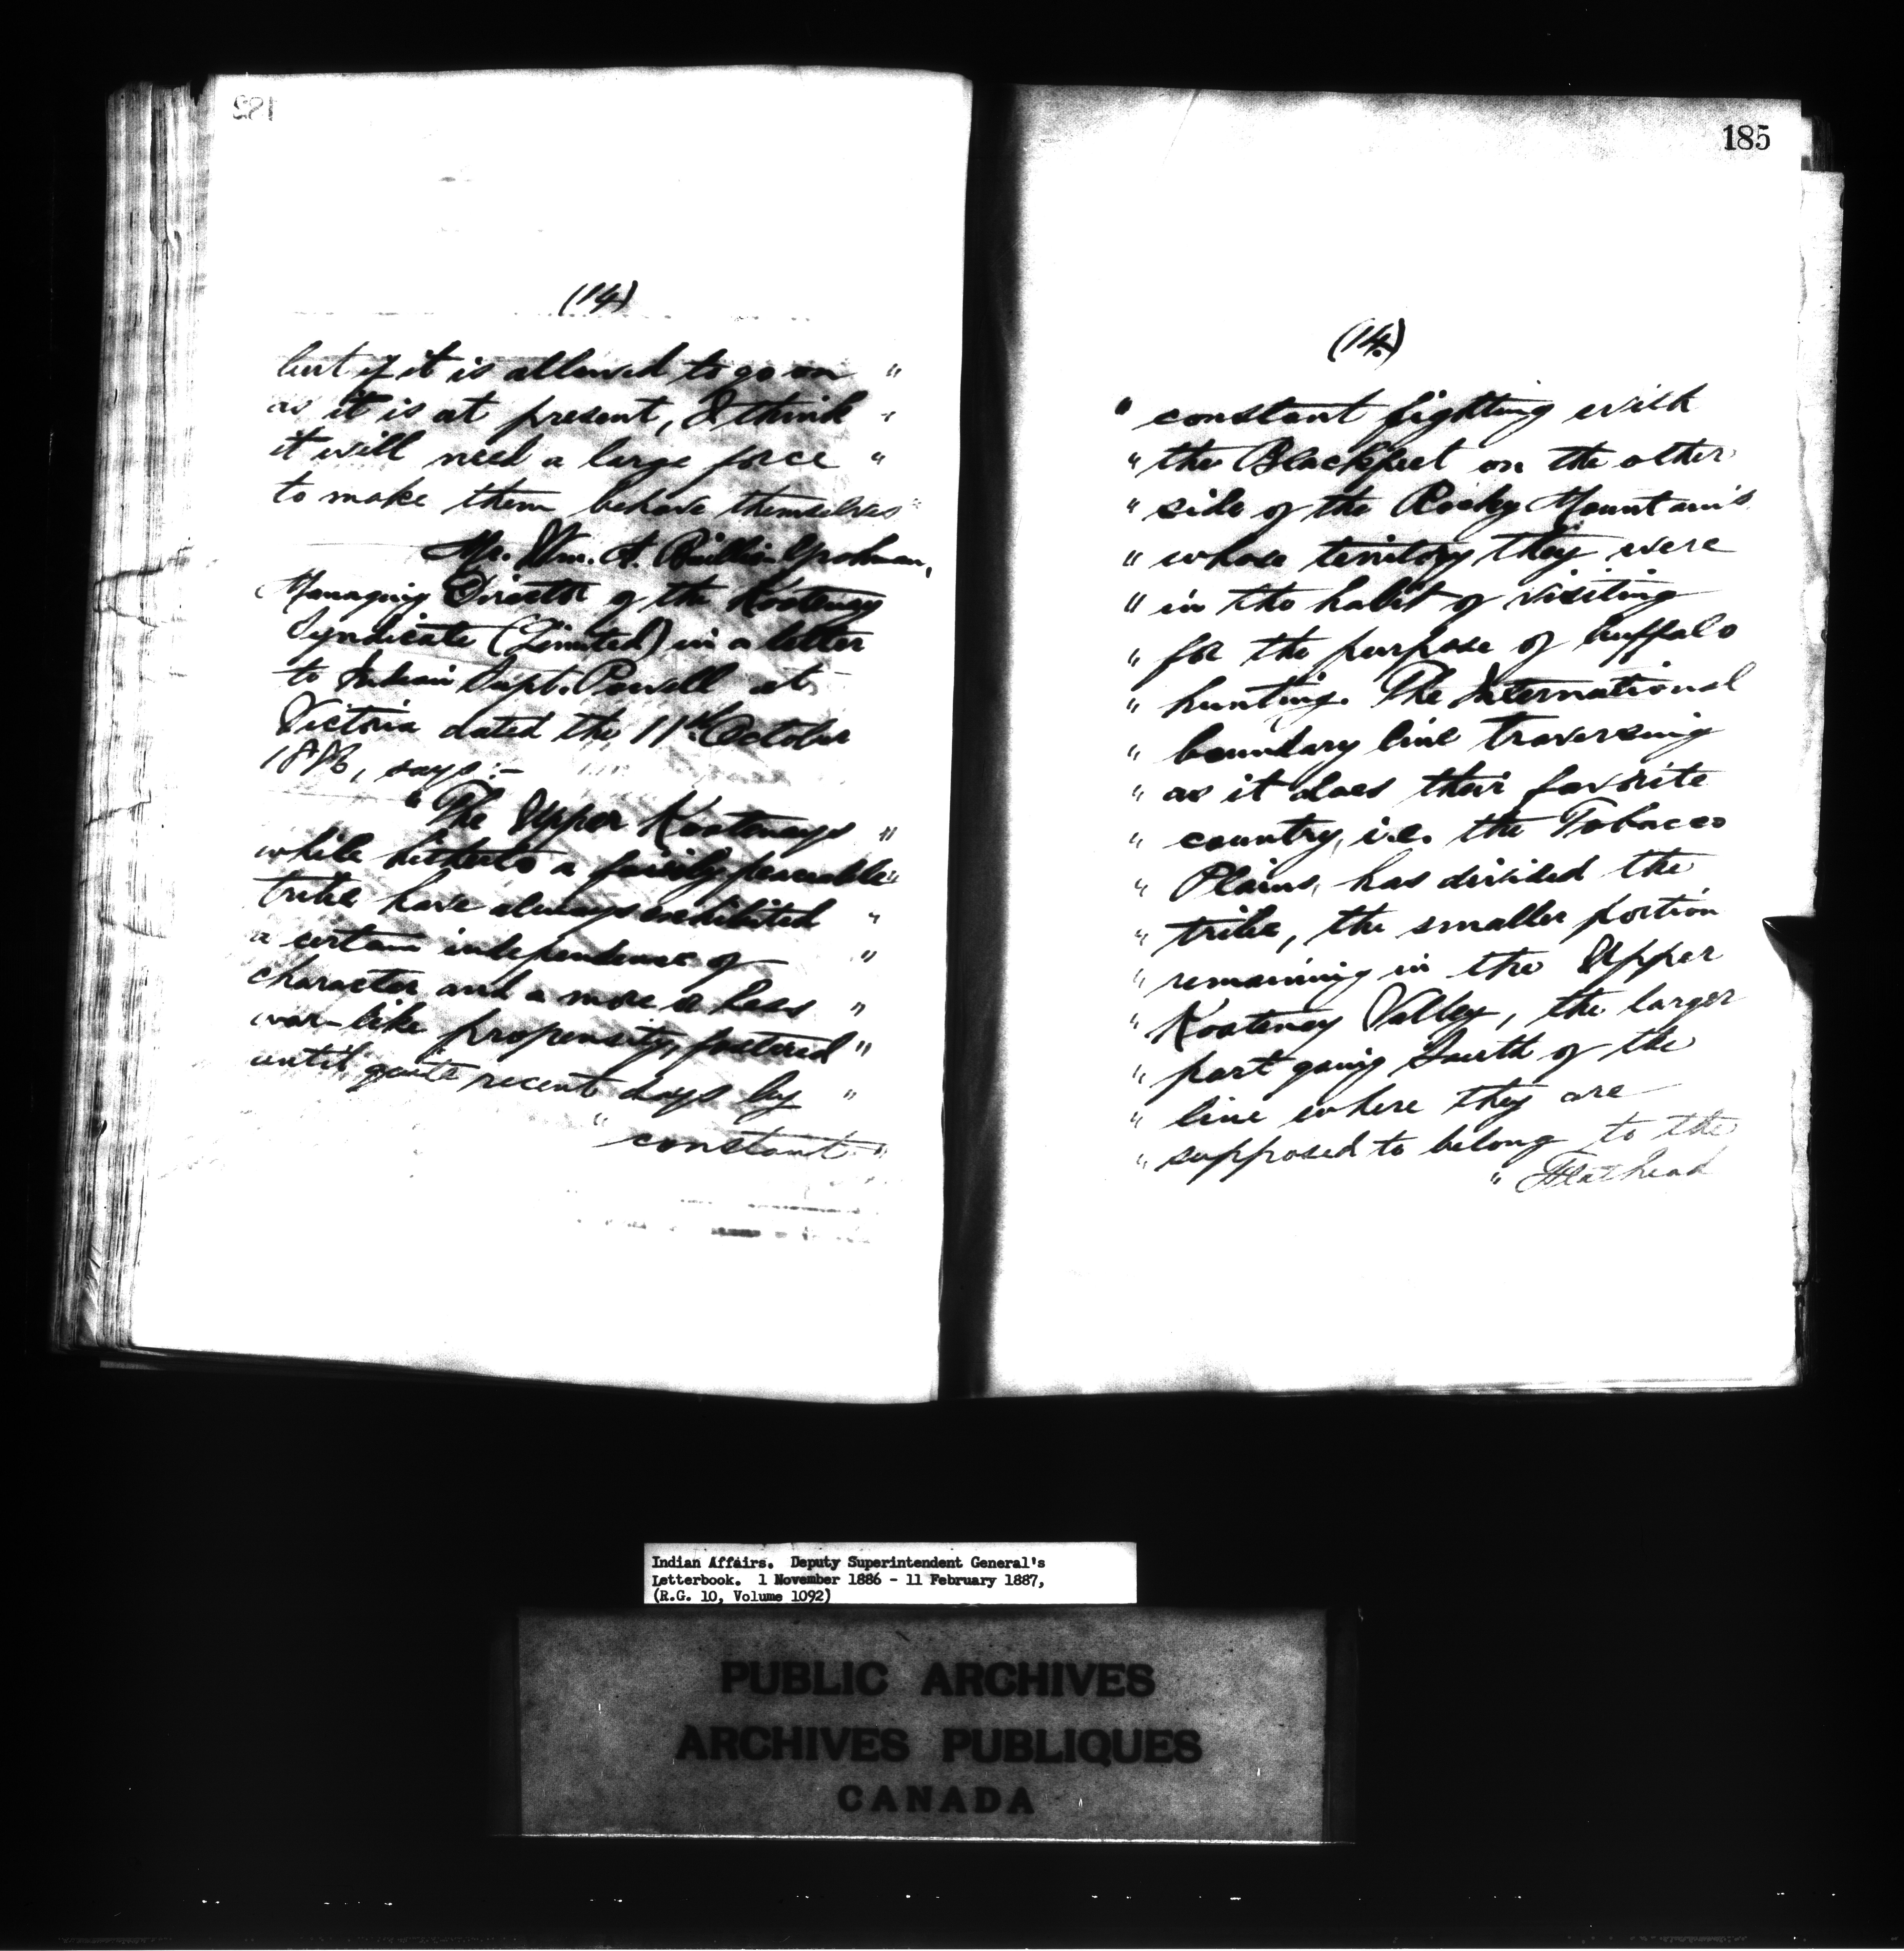 (14)
but if it is allowed to go on "
as it is at present, I think "
it will need a large force "
to make them behave themselves "
Mr. Wm. A. Baillie-Grohman,
Managing Director of the Kootenay
Syndicate (Limited) in a letter
to Indian Supt. Powell at
Victoria dated the 11th October
1886, says:-
"The Upper Kootenays "
while hitherto a fairly peaceable "
tribe have always exhibited "
a certain independence of "
character and a more or less "
war-like propensity, fostered "
until quite recent days by "
" constant "
185
(14.)
" constant fighting with
" the Blackfeet on the other
" side of the Rocky Mountains
" whose territory they were
" in the habit of visiting
" for the purpose of buffalo
" hunting. The International
" boundary line traversing
" as it does their favorite
" country, i.e. the Tobacco
" Plains, has divided the
" tribe, the smaller portion
" remaining in the Upper
" Kootenay Valley, the larger
" part going South of the
" line where they are
" supposed to belong to the
" Flathead
Indian Affairs. Deputy Superintendent General's
Letterbook. 1 November 1886 - 11 February 1887,
(R.G. 10, Volume 1092)
PUBLIC ARCHIVES
ARCHIVES PUBLIQUES
CANADA